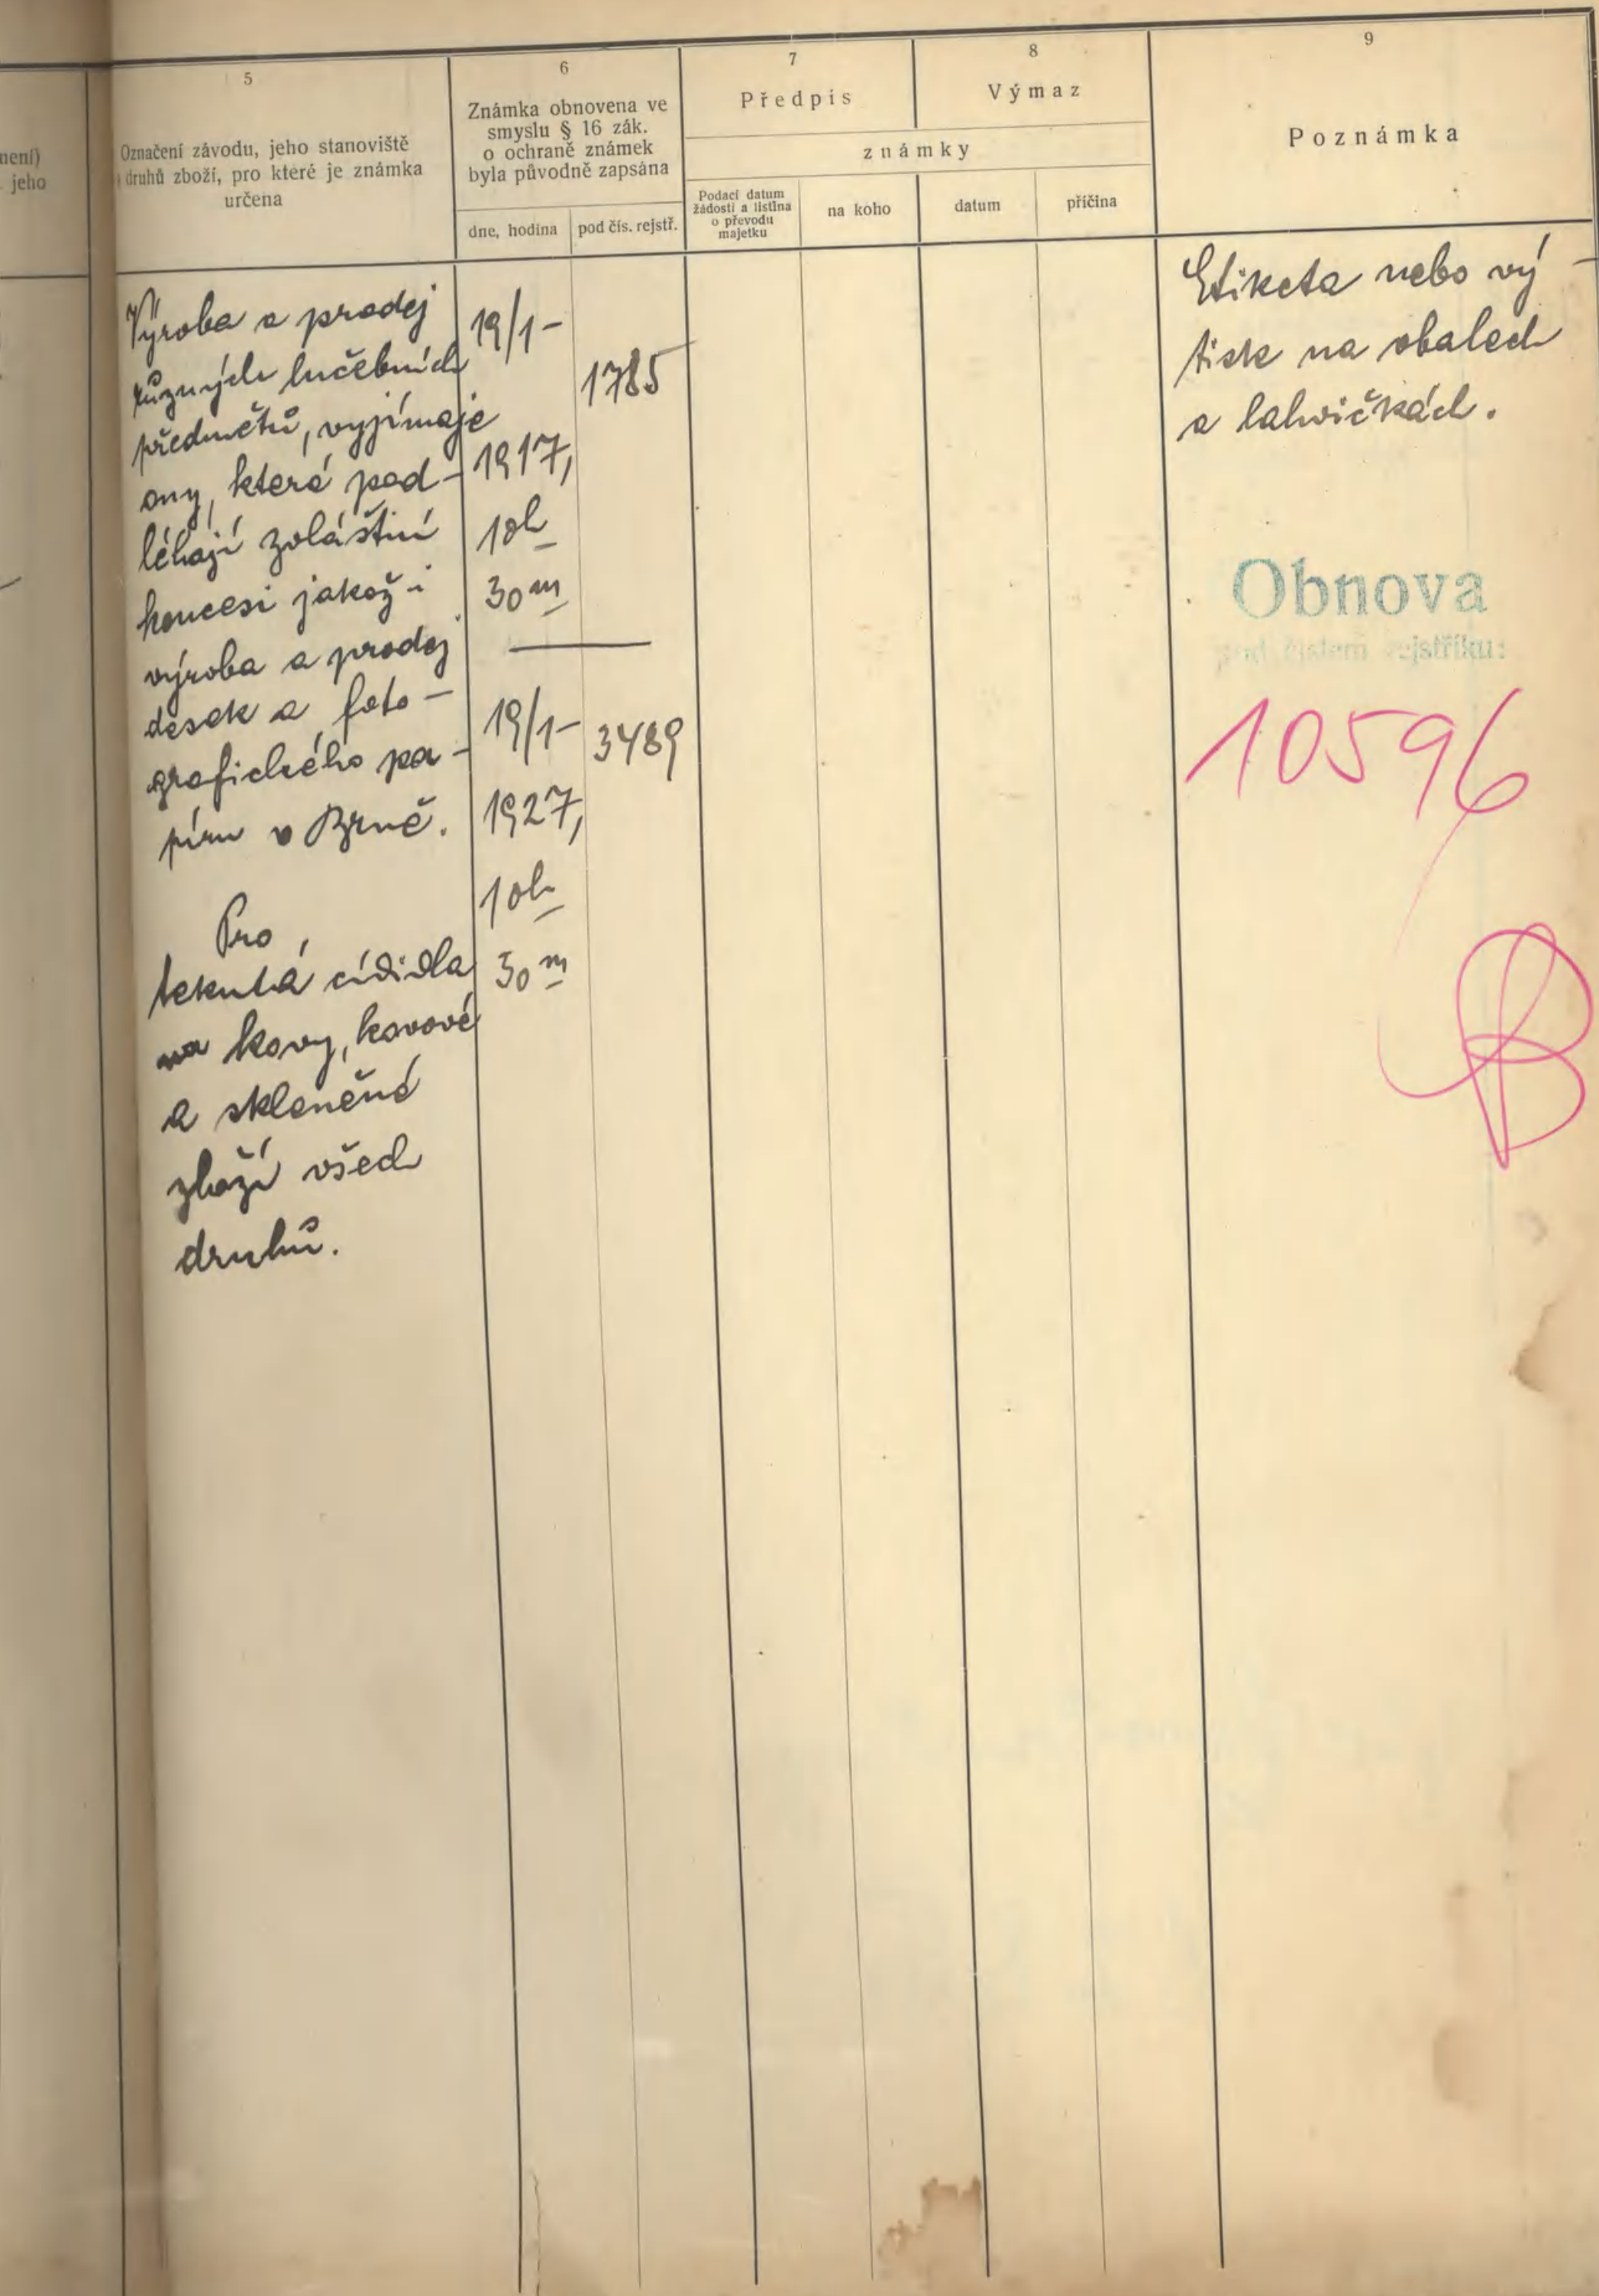 není)
jeho
5
Označení závodu, jeho stanoviště
i druhů zboží, pro které je známka
určena
6
Známka obnovena ve
smyslu § 16 zák.
o ochraně známek
byla původně zapsána
dne, hodina
pod čís. rejstř.
7
Předpis
8
Výmaz
známky
Podací datum
žádosti a listina
o převodu
majetku
na koho
datum
příčina
9
Poznámka
Výroba a prodej
různých lučebních
předmětů, vyjímaje
ony, které pod-
léhají zvláštní
koncesi jakož i
výroba a prodej
desek a foto-
grafického pa-
píru v Brně.
Pro
tekutá cídidla
na kovy, kovové
a skleněné
zboží všech
druhů.
19/1-
1917,
10h
30m
1785
19/1-
1927,
10h
30m
3489
Etiketa nebo vý-
tisk na obalech
a lahvičkách.
Obnova
pod číslem rejstříku:
10596